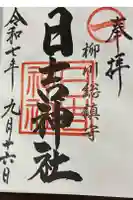 奉拝
柳川総鎮守
日吉神社
令和七年九月十六日